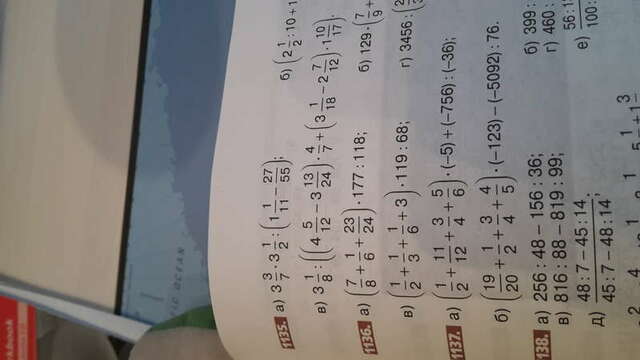 rkbook
IC OCEAN
1135. а) 3 3/7 · 3 1/2 : (1 1/11 − 27/55); б) (2 1/2 : 10 + 1
в) 3 1/8 : ((4 5/12 − 3 13/24) · 4/7 + (3 1/18 − 2 7/12) · 1 10/17).
1136. а) (7/8 + 1/6 + 23/24) · 177 : 118; б) 129 · (7/9 +
в) (1/2 + 1/3 + 1/6 + 3) · 119 : 68; г) 3456 : (2
1137. а) (1/2 + 11/12 + 3/4 + 5/6) · (−5) + (−756) : (−36);
б) (19/20 + 1/2 + 3/4 + 4/5) · (−123) − (−5092) : 76.
138. а) 256 : 48 − 156 : 36; б) 399 :
в) 816 : 88 − 819 : 99; г) 460 :
д) 48 : 7 − 45 : 14 / 45 : 7 − 48 : 14; е) 56 : 1 / 100 :